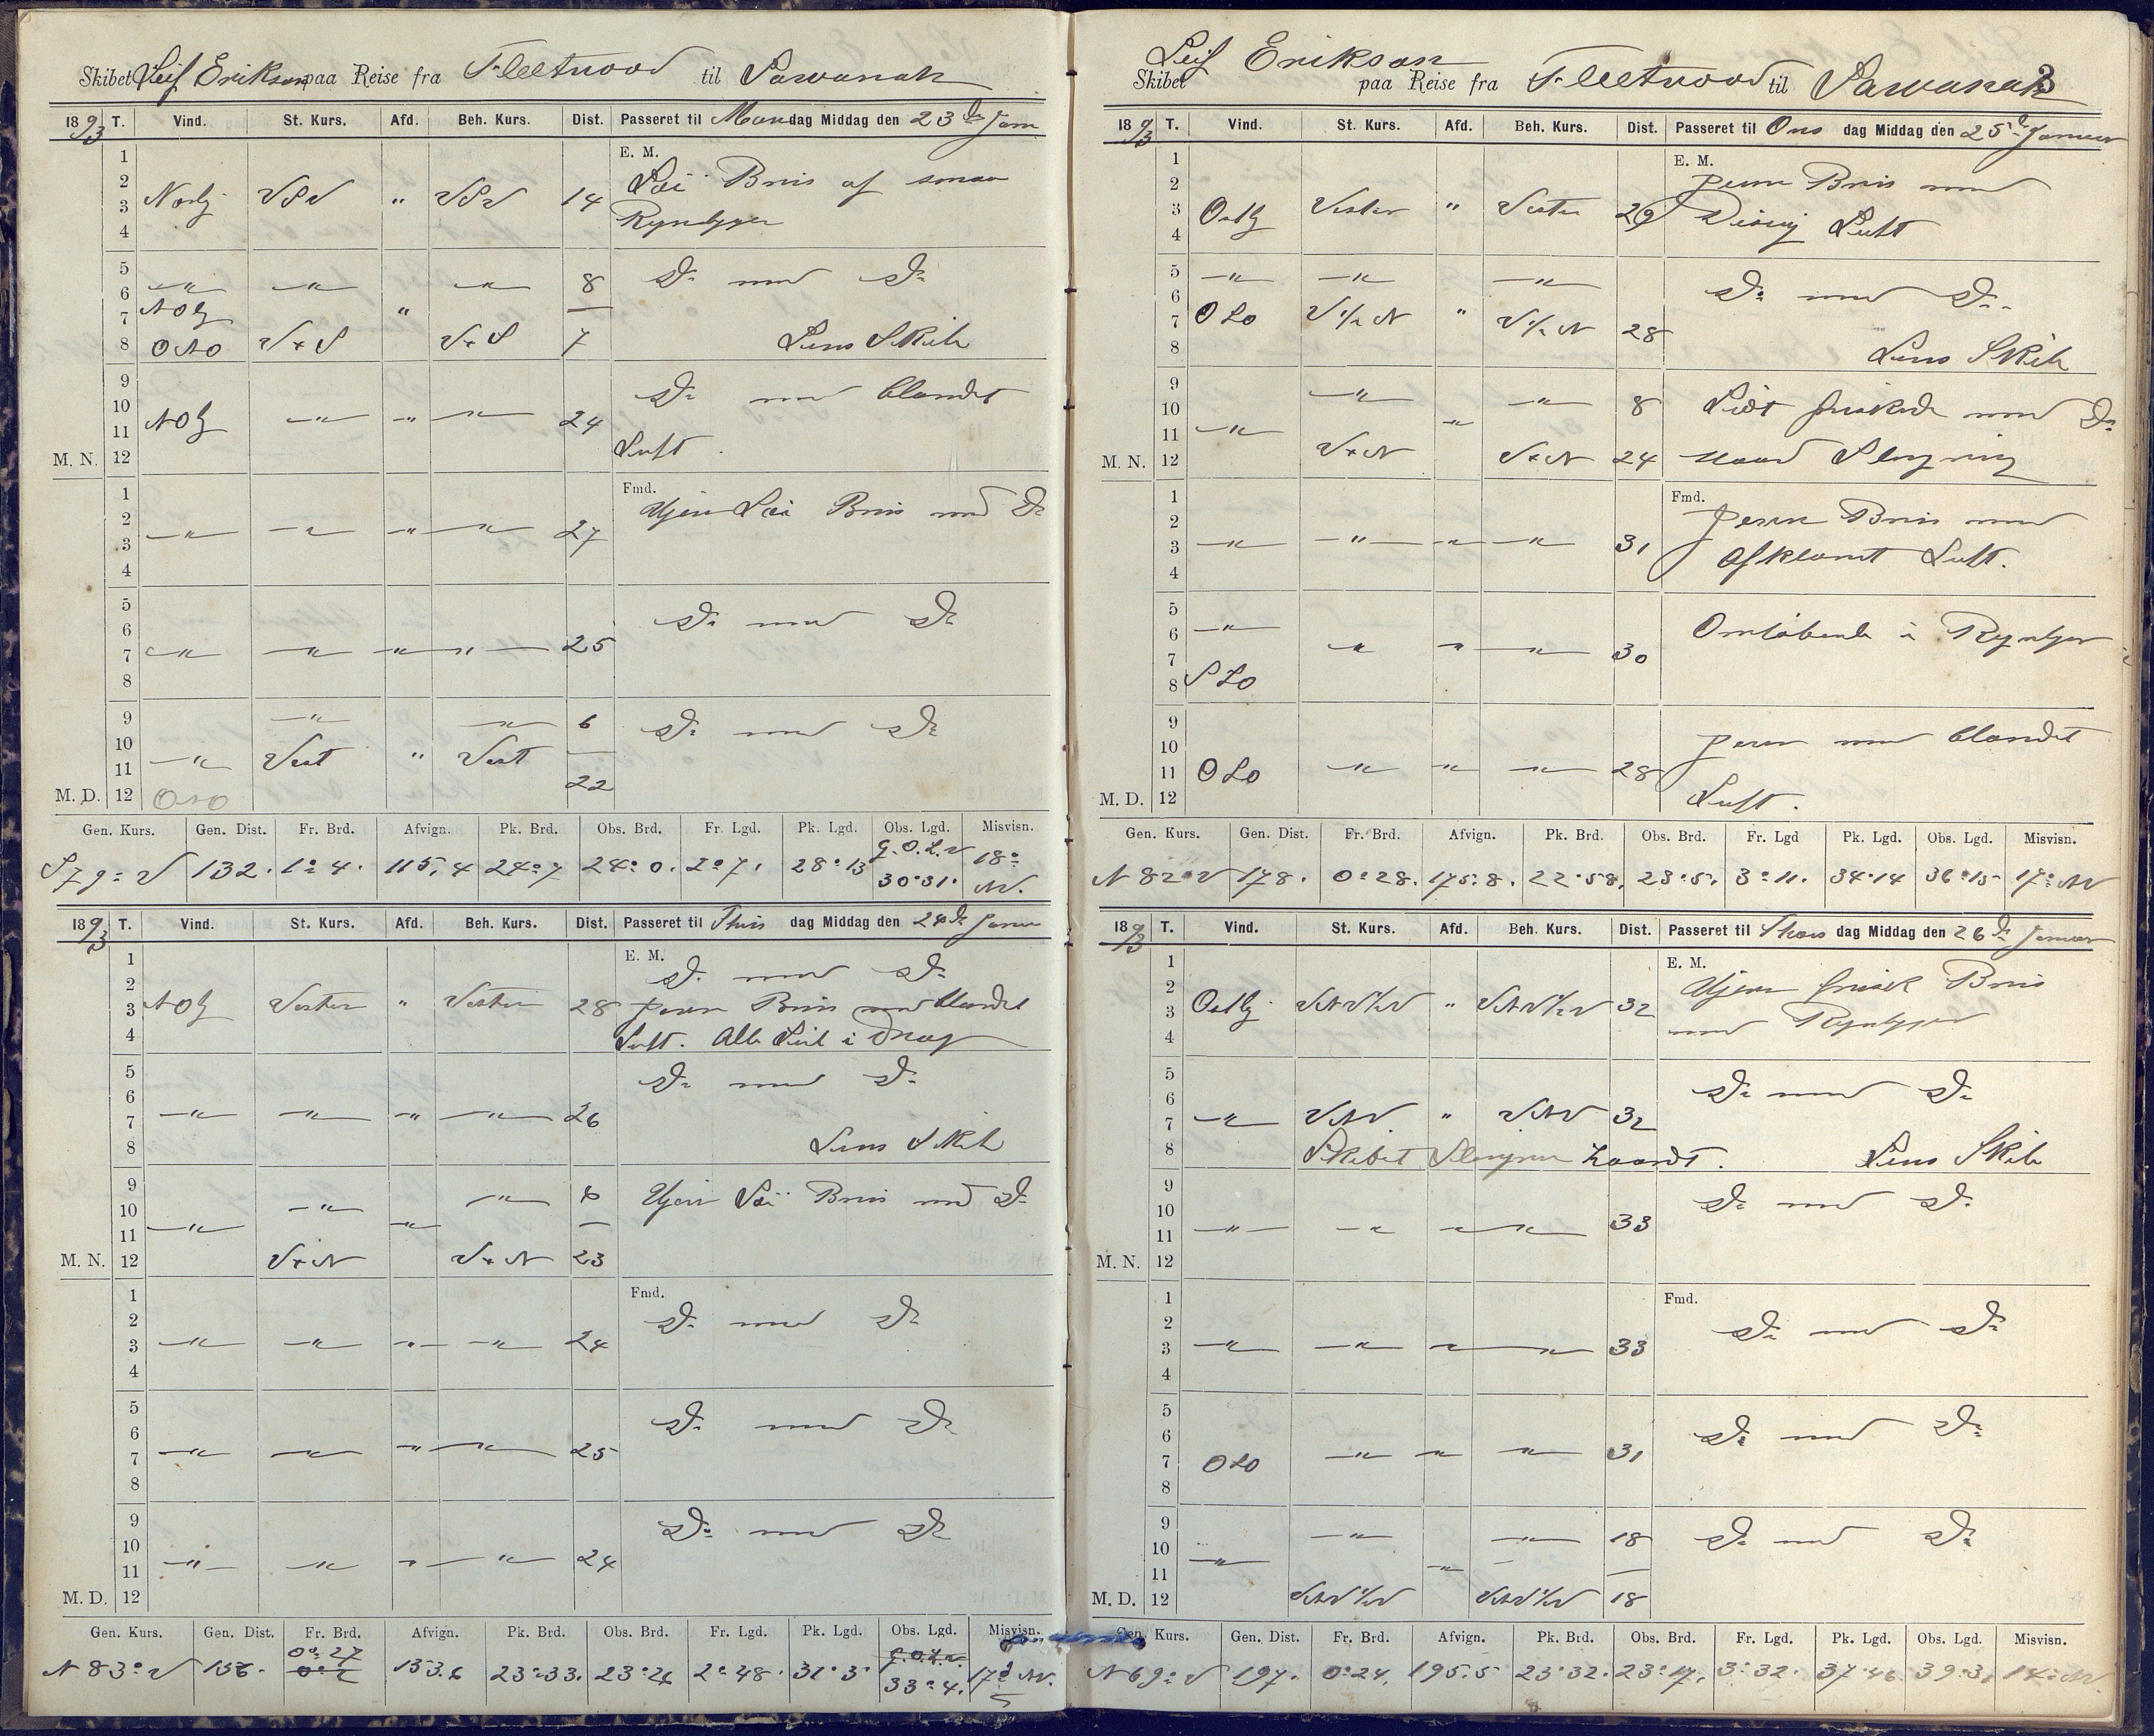 Skibet Leif Erikson paa Reise fra Fleetwood til Savanah
18 93 T. Vind. St. Kurs. Afd. Beh. Kurs. Dist. Passeret til Mandag Middag den 23de Janr
E. M.
1
2 Løi Bris af smaa
3 Nordlig VSV " VSV 14 Rynbyger
4
5 Do med Do
6 —"— —"— —"— 8
7 NOlg "
8 ONO V+S V+S 7 Lens Skib
9 Do med blandet
10
11 NOlg —"— —"— —"— 24
M. N. 12 Luft.
Fmd.
1 Ujevn Løi Bris med Do
2
3 —"— —"— —"— —"— 27
4
5 Do med Do
6
7 —"— —"— —"— —"— 25
8
9 —"— —"— 6 Do med Do
10
11 —"— Vest " Vest
M. D. 12 ONO 22
Gen. Kurs. Gen. Dist. Fr. Brd. Afvign. Pk. Brd. Obs. Brd. Fr. Lgd. Pk. Lgd. Obs. Lgd. Misvisn.
G.O.L.V
S 79° V 132. 1° 4. 115,4 24° 7 24° 0. 2° 7. 28° 13 30° 31. 18° NV.
18 93 T. Vind. St. Kurs. Afd. Beh. Kurs. Dist. Passeret til Thirs dag Middag den 24de Janr
E. M.
1 Do med Do
2
3 NOlg Vester " Vester 28 Jevn Bris med blandet
4 Luft. Alle Seil i Drag
5 Do med Do
6
7 —"— —"— —"— —"— 26
8 Lens Skib
9 —"— 6 Ujevn Løi Bris med Do
10 —"—
11 —"— —"—
M. N. 12 V+N V+N 23
Fmd.
1 Do med Do
2
3 —"— —"— —"— —"— 24
4
5 Do med Do
6
7 —"— —"— —"— —"— 25
8
9 Do med Do
10
11 —"— —"— —"— —"— 24
M. D. 12
Gen. Kurs. Gen. Dist. Fr. Brd. Afvign. Pk. Brd. Obs. Brd. Fr. Lgd. Pk. Lgd. Obs. Lgd. Misvisn.
0° 27 G.O.L.V.
N 83° V 156. 153.6 23° 33. 23° 26 2° 48. 31° 3 33° 4. 17° NV.
Leif Erikson
Skibet paa Reise fra Fleetwood til Savanah
3
18 93 T. Vind. St. Kurs. Afd. Beh. Kurs. Dist. Passeret til Ons dag Middag den 25de Januar
E. M.
1 Jevn Bris med
2
3 Ostlg Vester " Vester 29 Disig Luft
4
5 —"— —"— —"—
6 Do med Do
7 OSO V½N " V½N 28
8 Lens Skib
9 —"— —"— 8 Lidt friskende med Do
10
11 —"— —"—
M. N. 12 V+N V+N 24 Haard Slingring
Fmd.
1 Jevn Bris med
2
3 —"— —"— —"— —"— 31 Afklaret Luft.
4
5 Omløbende i Rynbyer
6 —"—
7 —"— —"— —"— 30
8 SSO
9 Jevn med blandet
10
11 OSO —"— —"— —"— 28
M. D. 12 Luft.
Gen. Kurs. Gen. Dist. Fr. Brd. Afvign. Pk. Brd. Obs. Brd. Fr. Lgd Pk. Lgd. Obs. Lgd. Misvisn.
N 82° V 178. 0° 28. 175.8. 22° 58. 23° 5. 3° 11. 34° 14 36° 15 17° NV
18 93 T. Vind. St. Kurs. Afd. Beh. Kurs. Dist. Passeret til Thors dag Middag den 26de Januar
E. M.
1 Ujevn frisk Bris
2
3 Ostlg VNV½V " VNV½V 32 med Rynbyger
4
5 Do med Do
6
7 —"— VNV. " VNV 32
8 Skibet Slingrer haardt. Lens Skib
9 Do med Do
10
11 —"— —"— —"— —"— 33
M. N. 12
Fmd.
1 Do med Do
2
3 —"— —"— —"— —"— 33
4
5 Do med Do
6
7 OSO —"— —"— —"— 31
8
9 —"— —"— 18 Do med Do
10 —"—
11 —"—
M. D. 12 VNV½V VNV½V 18
Gen. Kurs. Gen. Dist. Fr. Brd. Afvign. Pk. Brd. Obs. Brd. Fr. Lgd. Pk. Lgd. Obs. Lgd. Misvisn.
N 69° V 197. 0° 24. 195.5 23° 32. 23° 17. 3° 32. 37° 46 39° 3 14° NV.